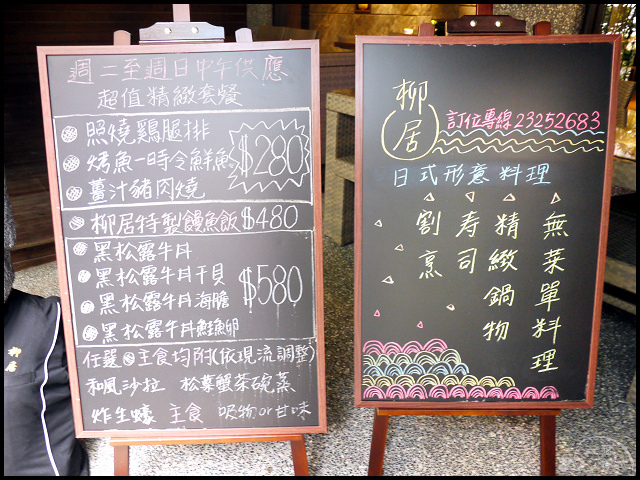 週二至週日中午供應
超值精緻套餐
照燒鷄腿排
烤魚一時令鮮魚
薑汁豬肉燒
$280
柳居特製饅魚飯$480
黑松露牛丹
黑松露牛丹干貝
黑松露牛丹海膽
黑松露牛丹鮭魚卵
$580
任選 主食均附(依現流調整)
和風沙拉 松葉蟹茶碗蒸
炸生蠔 主食 吸物or甘味
柳居
訂位專線23252683
日式形意料理
無菜單料理
精緻鍋物
寿司
割烹
柳居